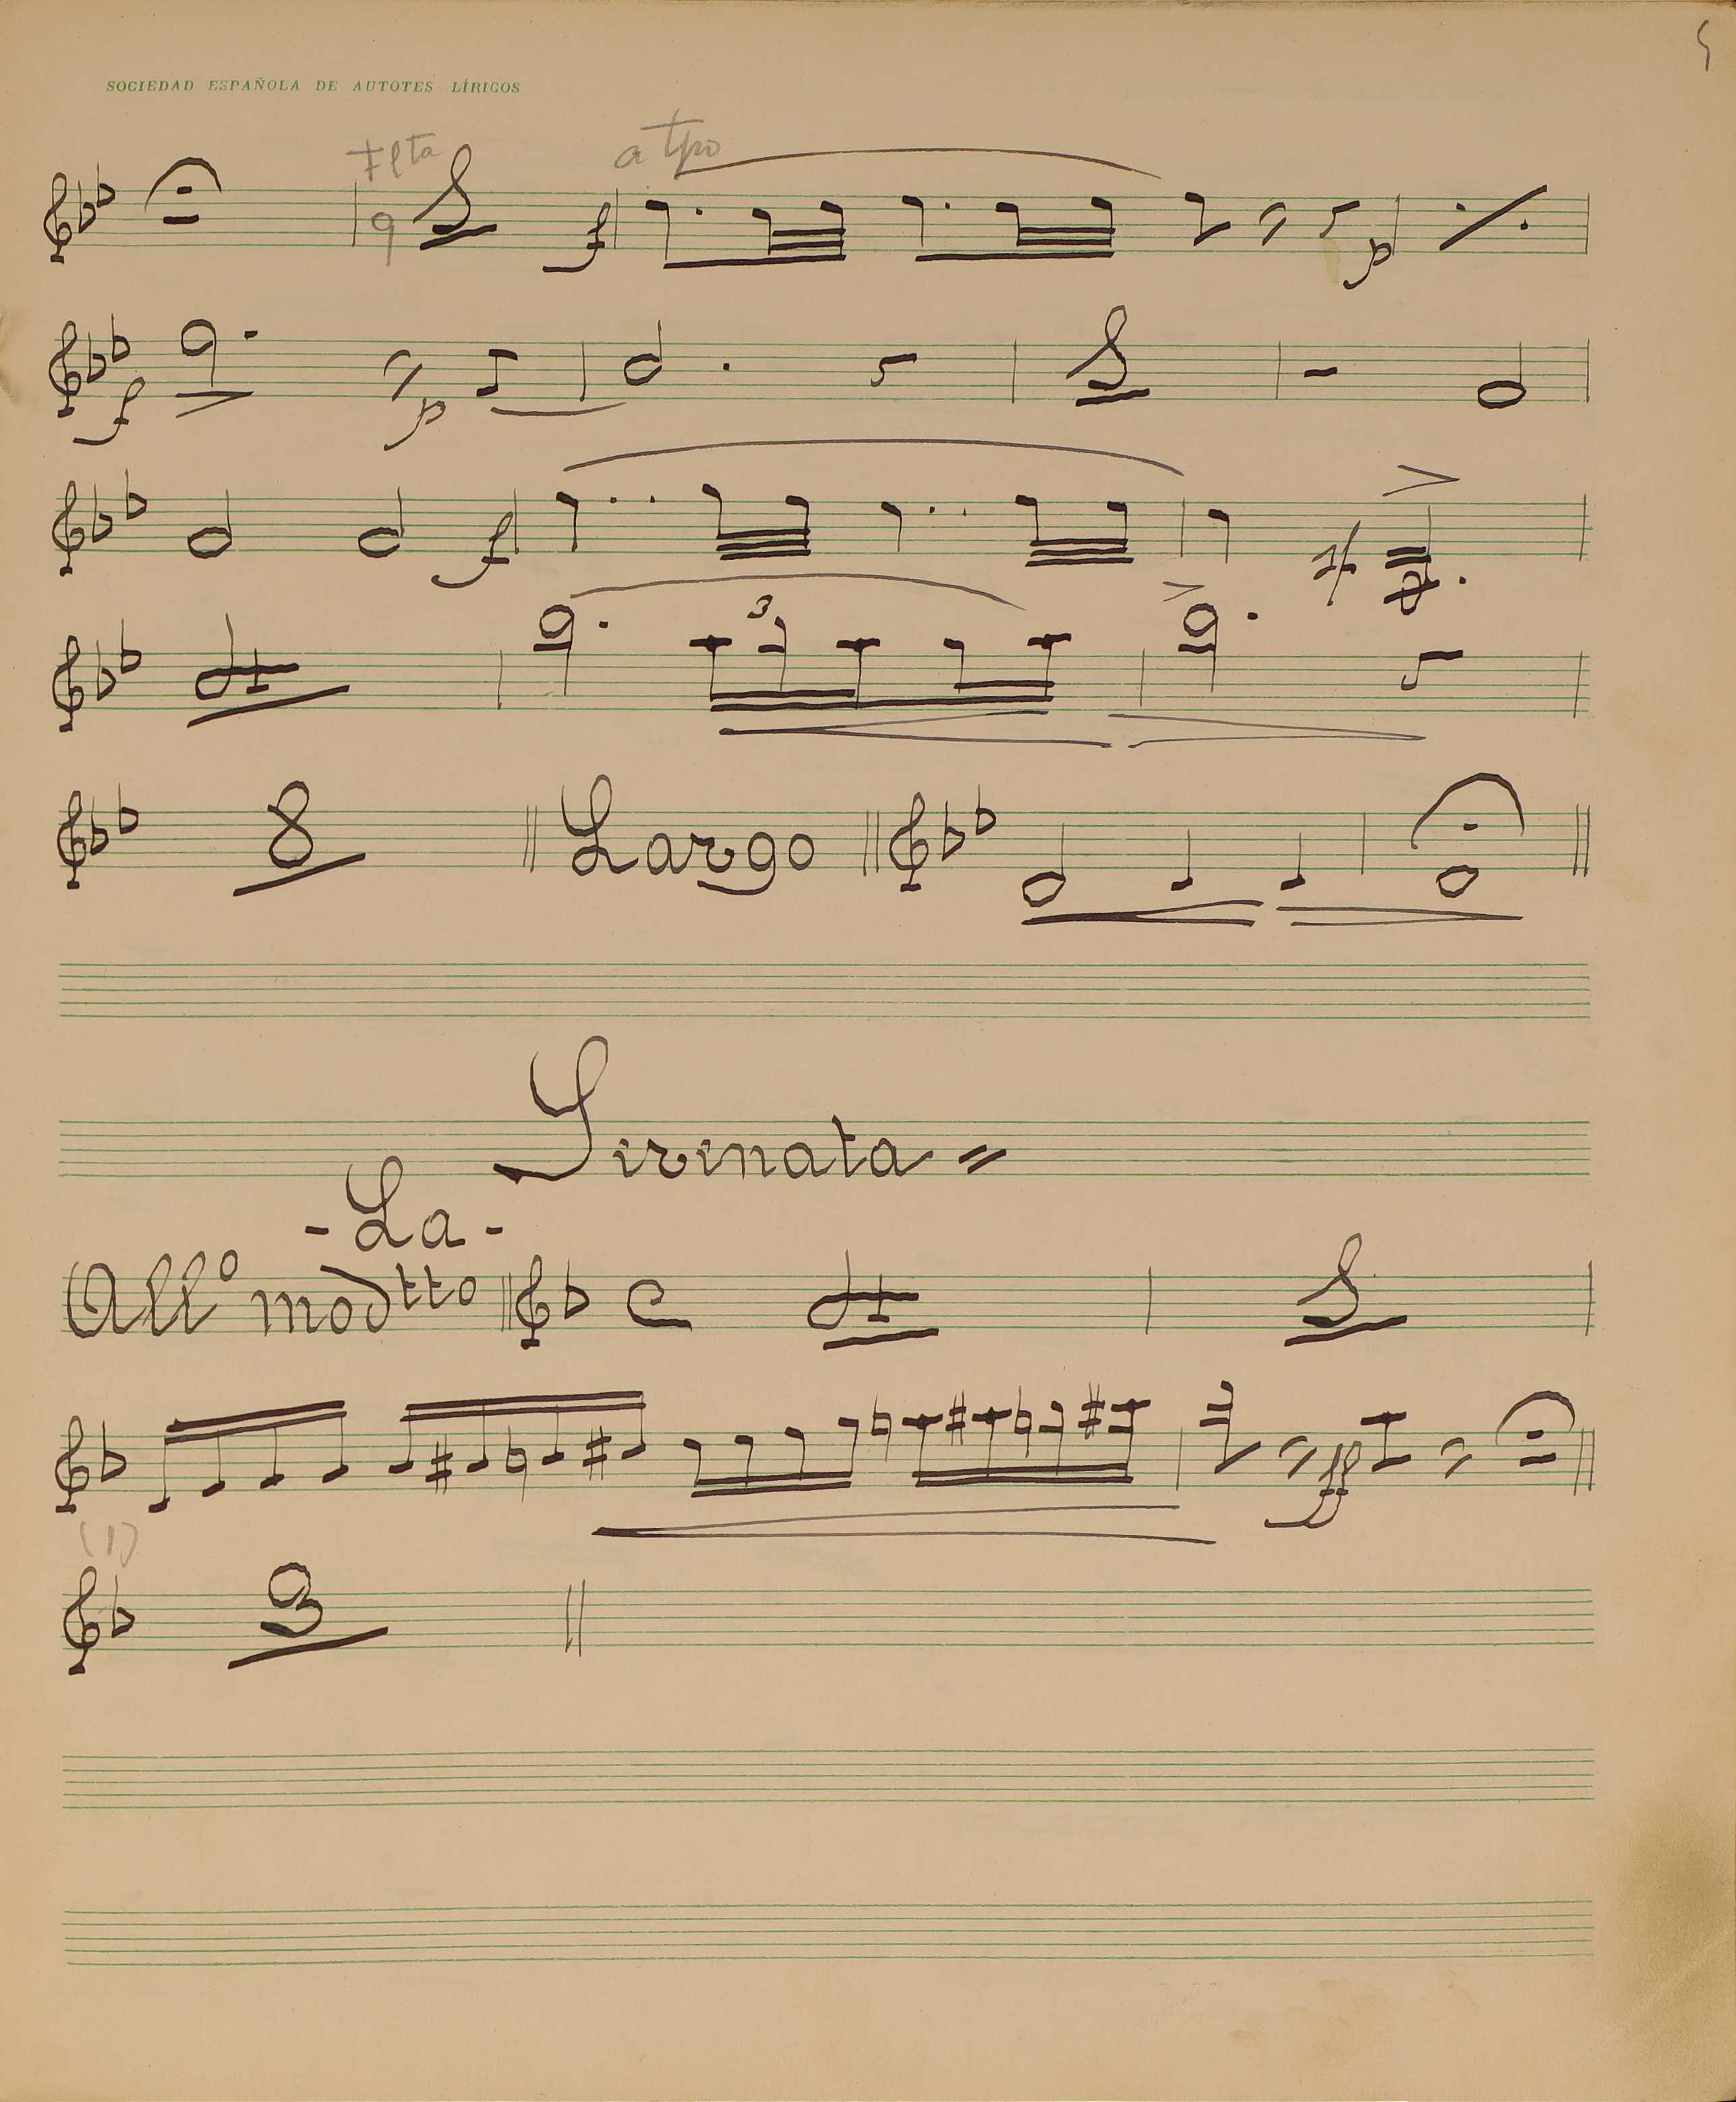 5
SOCIEDAD ESPAÑOLA DE AUTOTES LÍRICOS
flta a tpo
f p
f p
f sf
3
8 Largo
Sirinata =
- La -
All° modtto C 4
ff
(1)
3